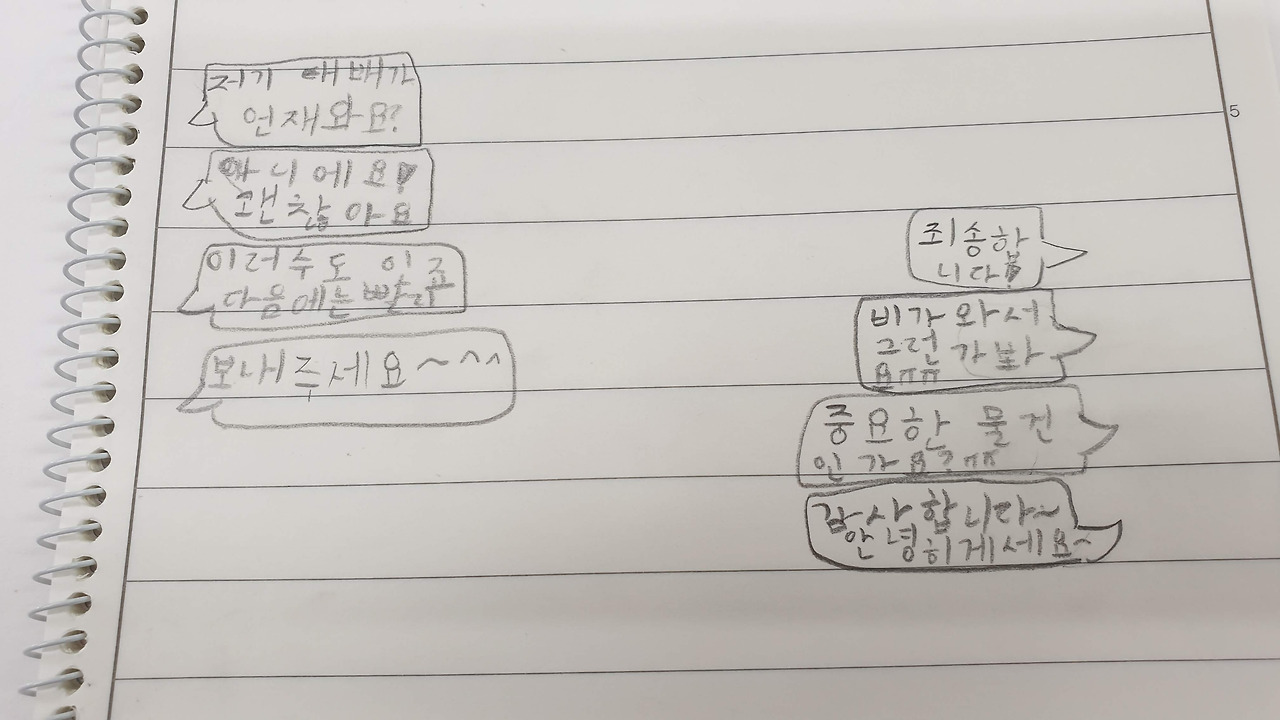 저기 태배가
언재와요?
아니에요!
괜찮아요
이러수도 있죠
다음에는 빨리
보내주세요~^^
죄송합
니다!
비가 와서
그런가봐
요ㅠㅠ
중요한 물건
인가요?ㅠㅠ
감사합니다~
안녕히게세요~
5